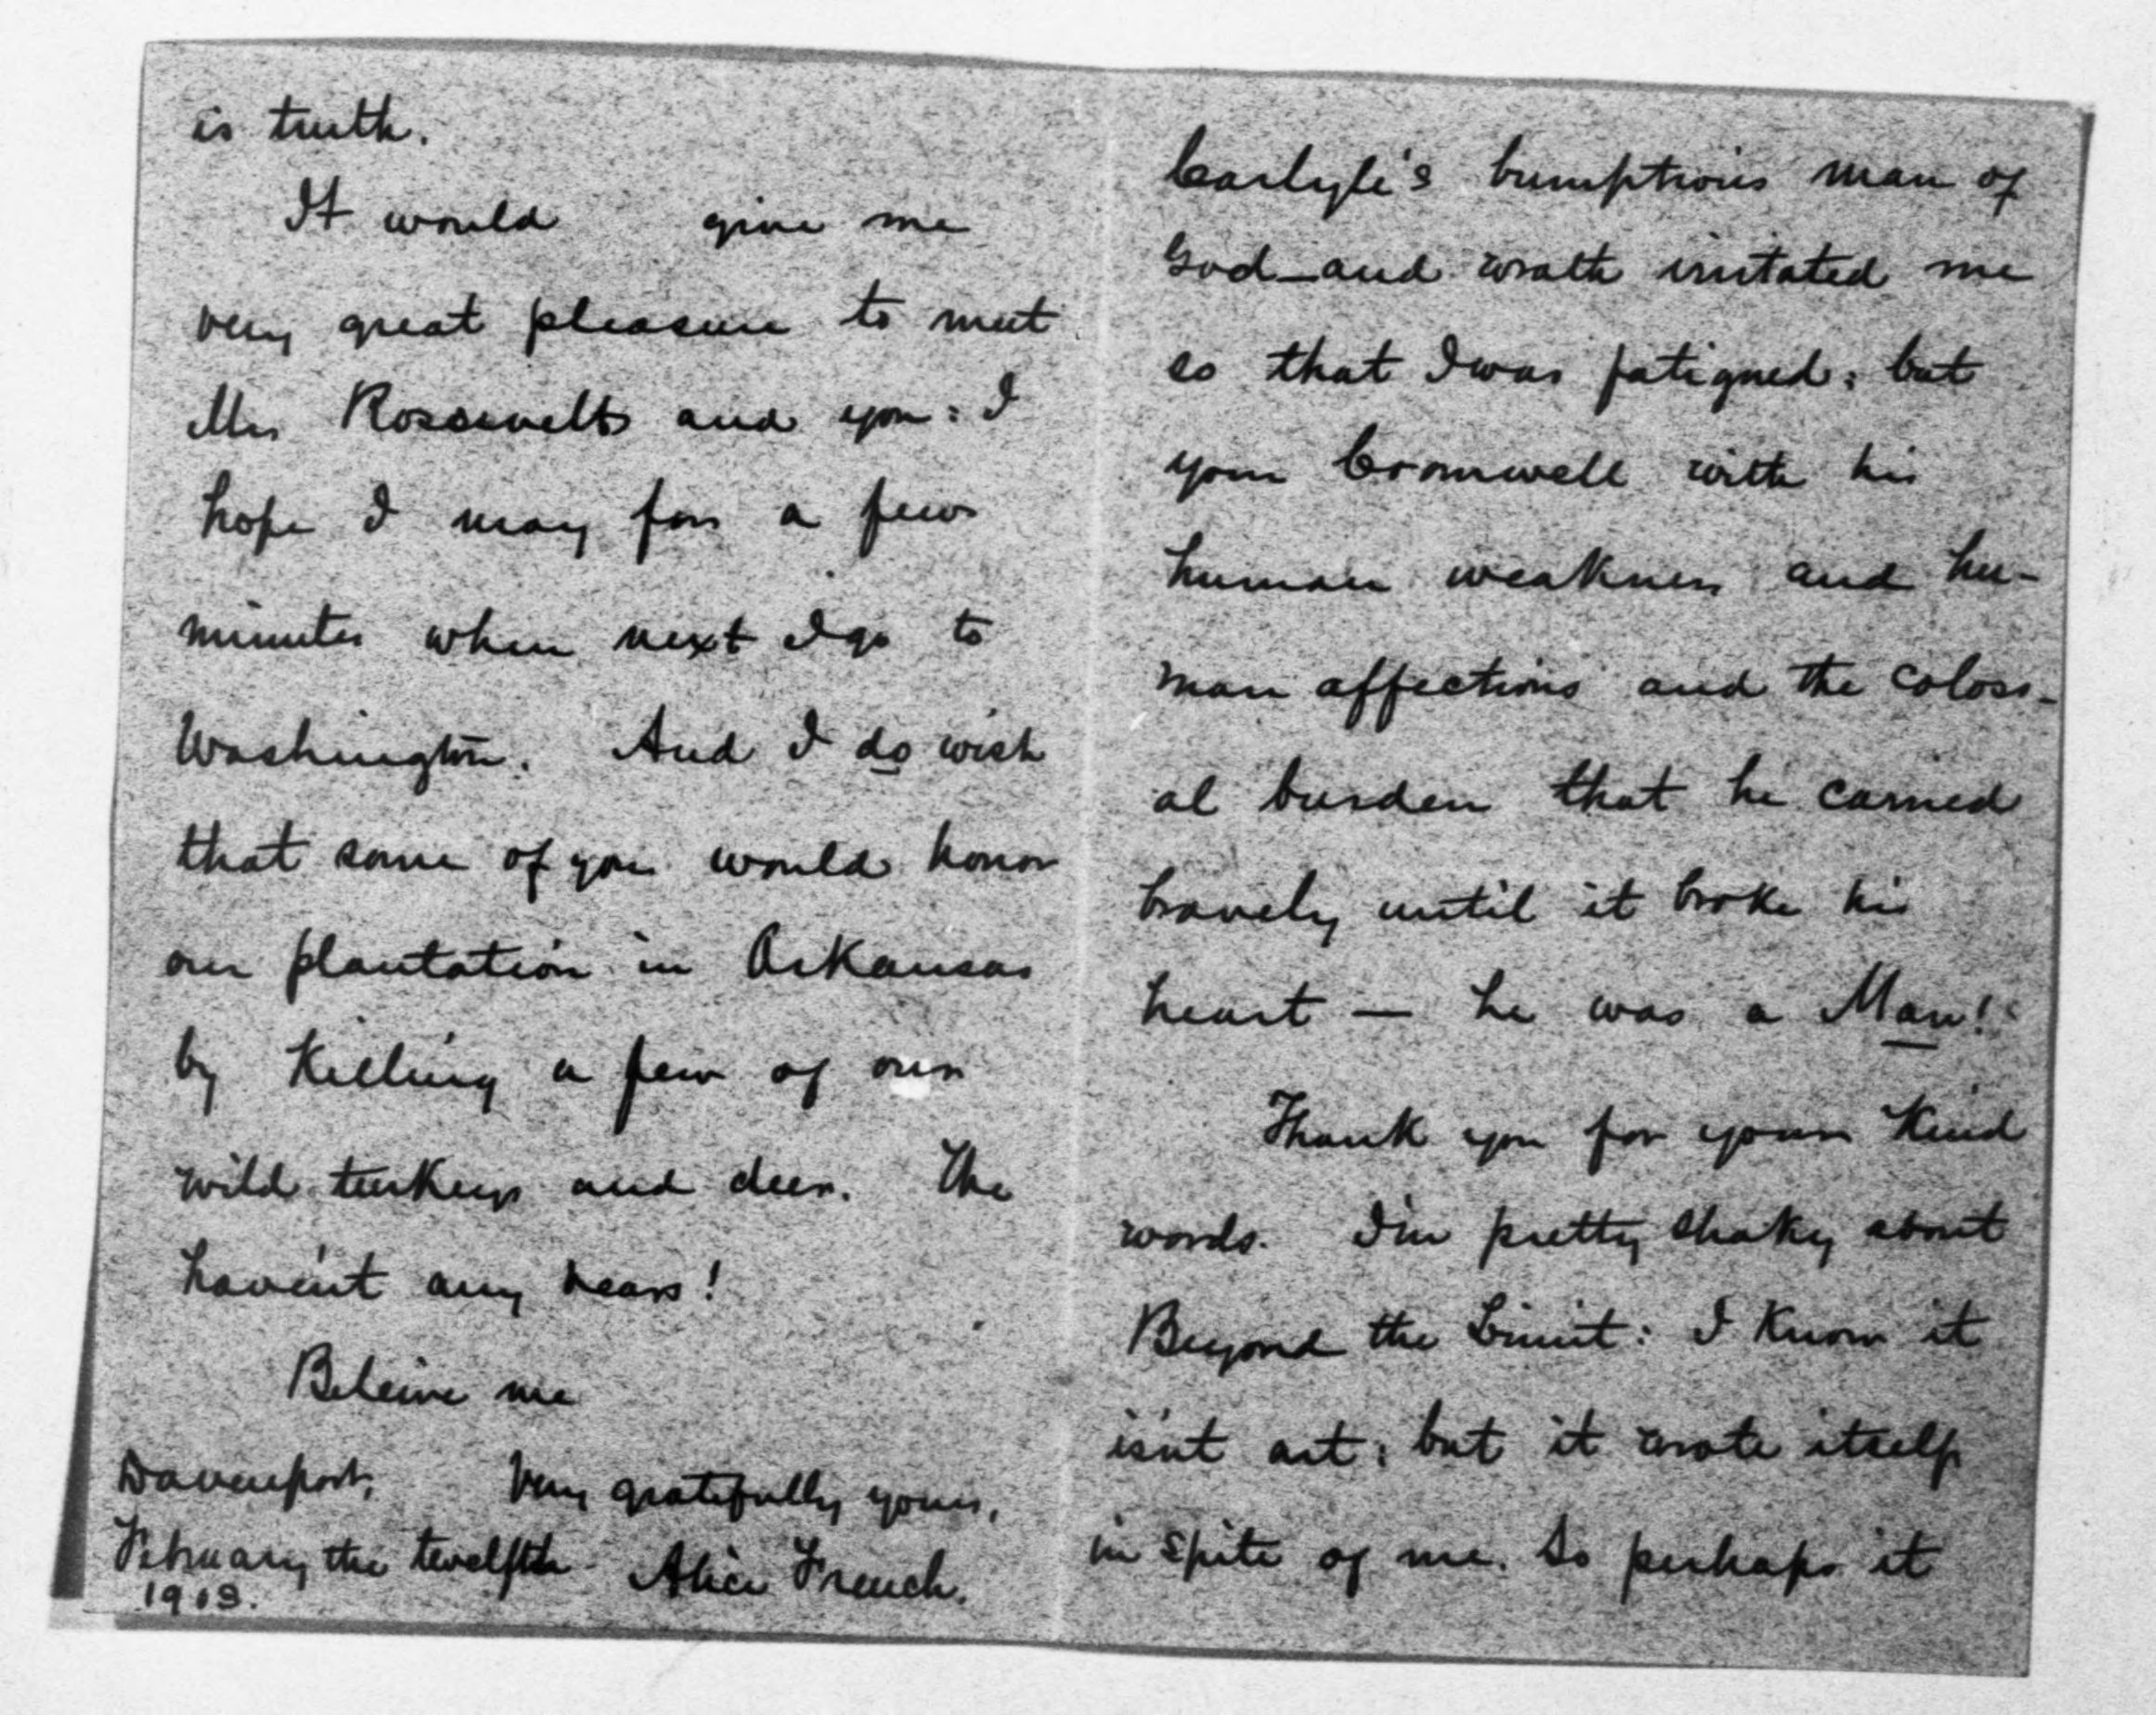 is truth.
It would give me
very great pleasure to meet
Mrs Roosevelt and you: I
hope I may for a few
minutes when next I go to
Washington. And I do wish
that some of you would honor
our plantation in Arkansas
by killing a few of our
wild turkeys and deer. We
haven't any bears!
Beleive me
Very gratefully yours,
Alice French.
Davenport,
February the twelfth
1903.
Carlyle's bumptious man of
God—and wrath irritated me
so that I was fatigued; but
your Cromwell with his
human weakness and hu-
man affections and the coloss-
al burden that he carried
bravely until it broke his
heart — he was a Man!
Thank you for your kind
words. I'm pretty shaky about
Beyond the Limit: I know it
isn't art; but it wrote itself
in spite of me. So perhaps it